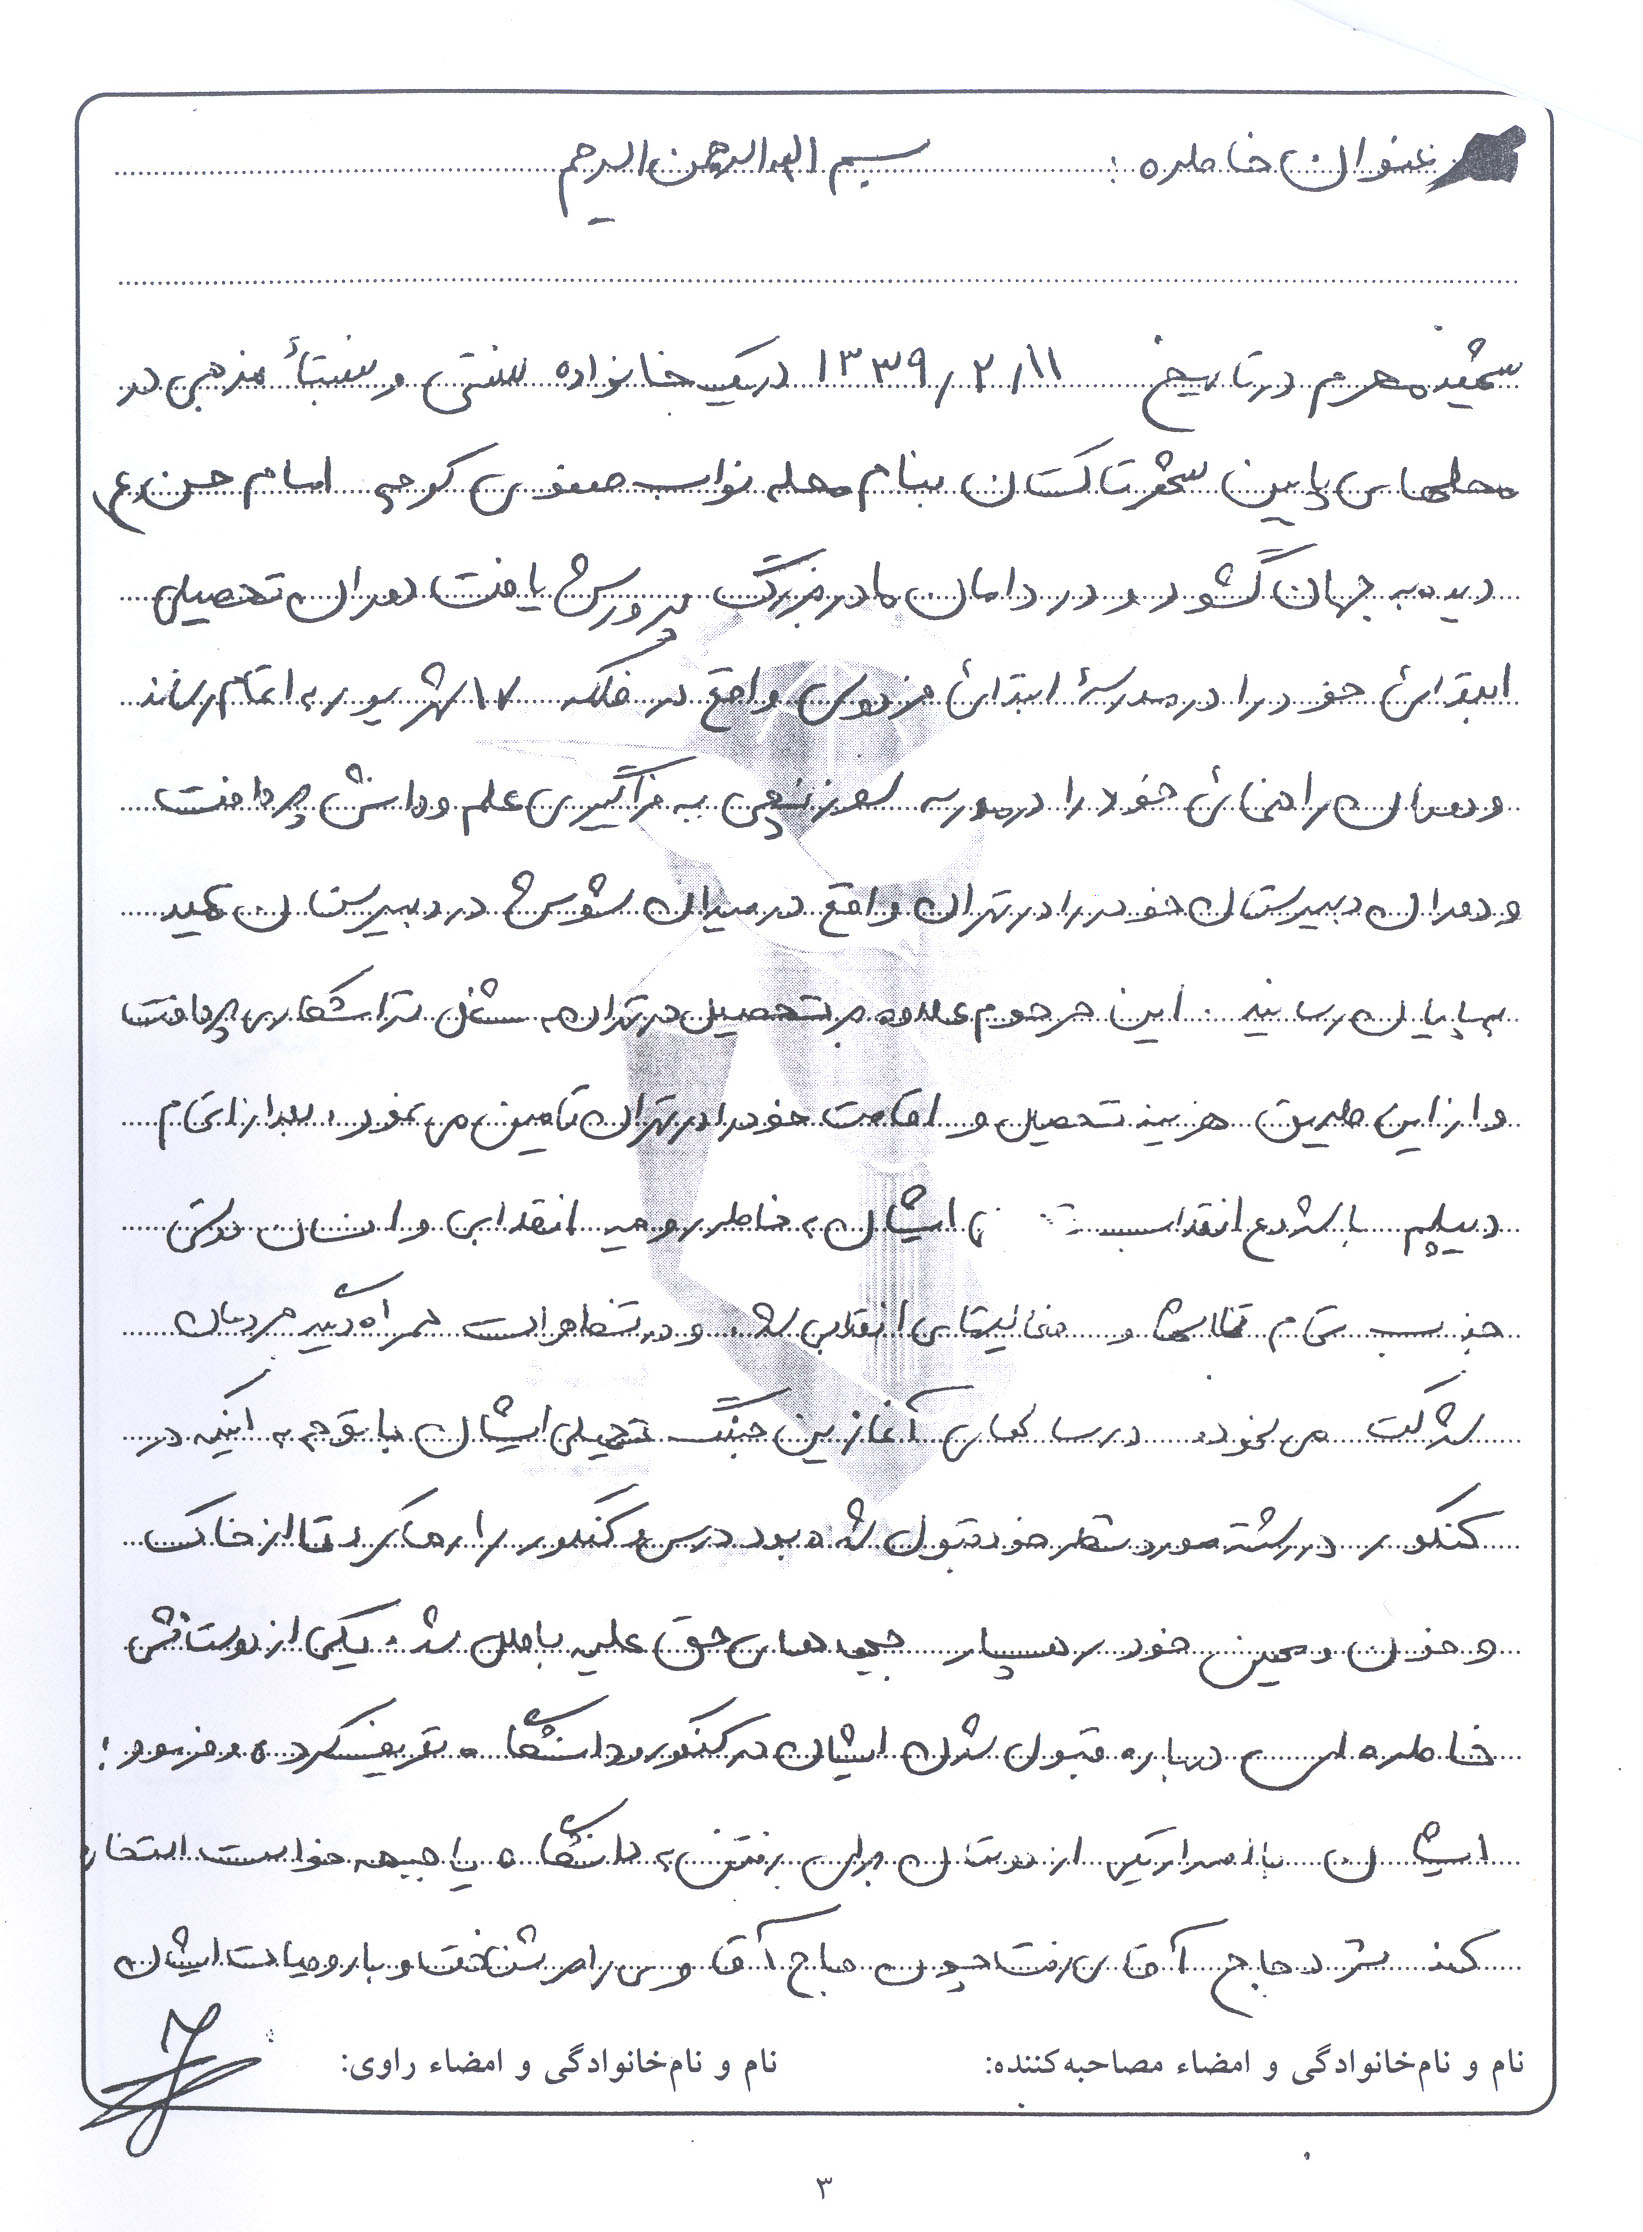 عنوان خاطره : بسم الله الرحمن الرحیم
شهید محرم در تاریخ ۱۳۳۹/۲/۱۱ در یک خانواده سنتی و نسبتاً مذهبی در
محله‌های پایین شهر تاکستان بنام محله نواب صفوی کوچه امام حسن (ع)
دیده به جهان گشود و در دامان مادربزرگ پرورش یافت دوران تحصیلی
ابتدائی خود را در مدرسهٔ ابتدائی فردوسی واقع در فلکه ۱۷ شهریور به اتمام رساند
و دوران راهنمائی خود را در مدرسه به فراگیری علم و دانش پرداخت
و دوران دبیرستان خود را در تهران واقع در میدان شوش در دبیرستان عمید
به پایان رسانید . این مرحوم علاوه بر تحصیل در تهران به شغل تراشکاری پرداخت
و از این طریق هزینه تحصیل و اقامت خود را در تهران تامین می نمود . بعد از اتمام
دیپلم با شروع انقلاب ایشان به خاطر روحیه انقلابی و انسان دوستی
جذب تمام تلاشها و فعالیتهای انقلابی شد . و در تظاهرات همراه دیگر مردمان
شرکت می نمود . در سالهای آغازین جنگ تحمیلی ایشان با توجه به اینکه در
کنکور در رشته مورد نظر خود قبول شده بود درس و کنکور را رها کرد تا از خاک
و خون و میهن خود رهسپار جبهه های حق علیه باطل شد . یکی از دوستانش
خاطره ای درباره قبول شدن ایشان در کنکور دانشگاه تعریف کرده و فرمود :
ایشان با اصرار یکی از دوستان برای رفتن به دانشگاه یا جبهه خواست انتخاب
کند نزد حاج آقای رفت چون حاج آقا وی را می شناخت و با روحیات ایشان
نام و نام‌خانوادگی و امضاء مصاحبه‌کننده: نام و نام‌خانوادگی و امضاء راوی:
۳